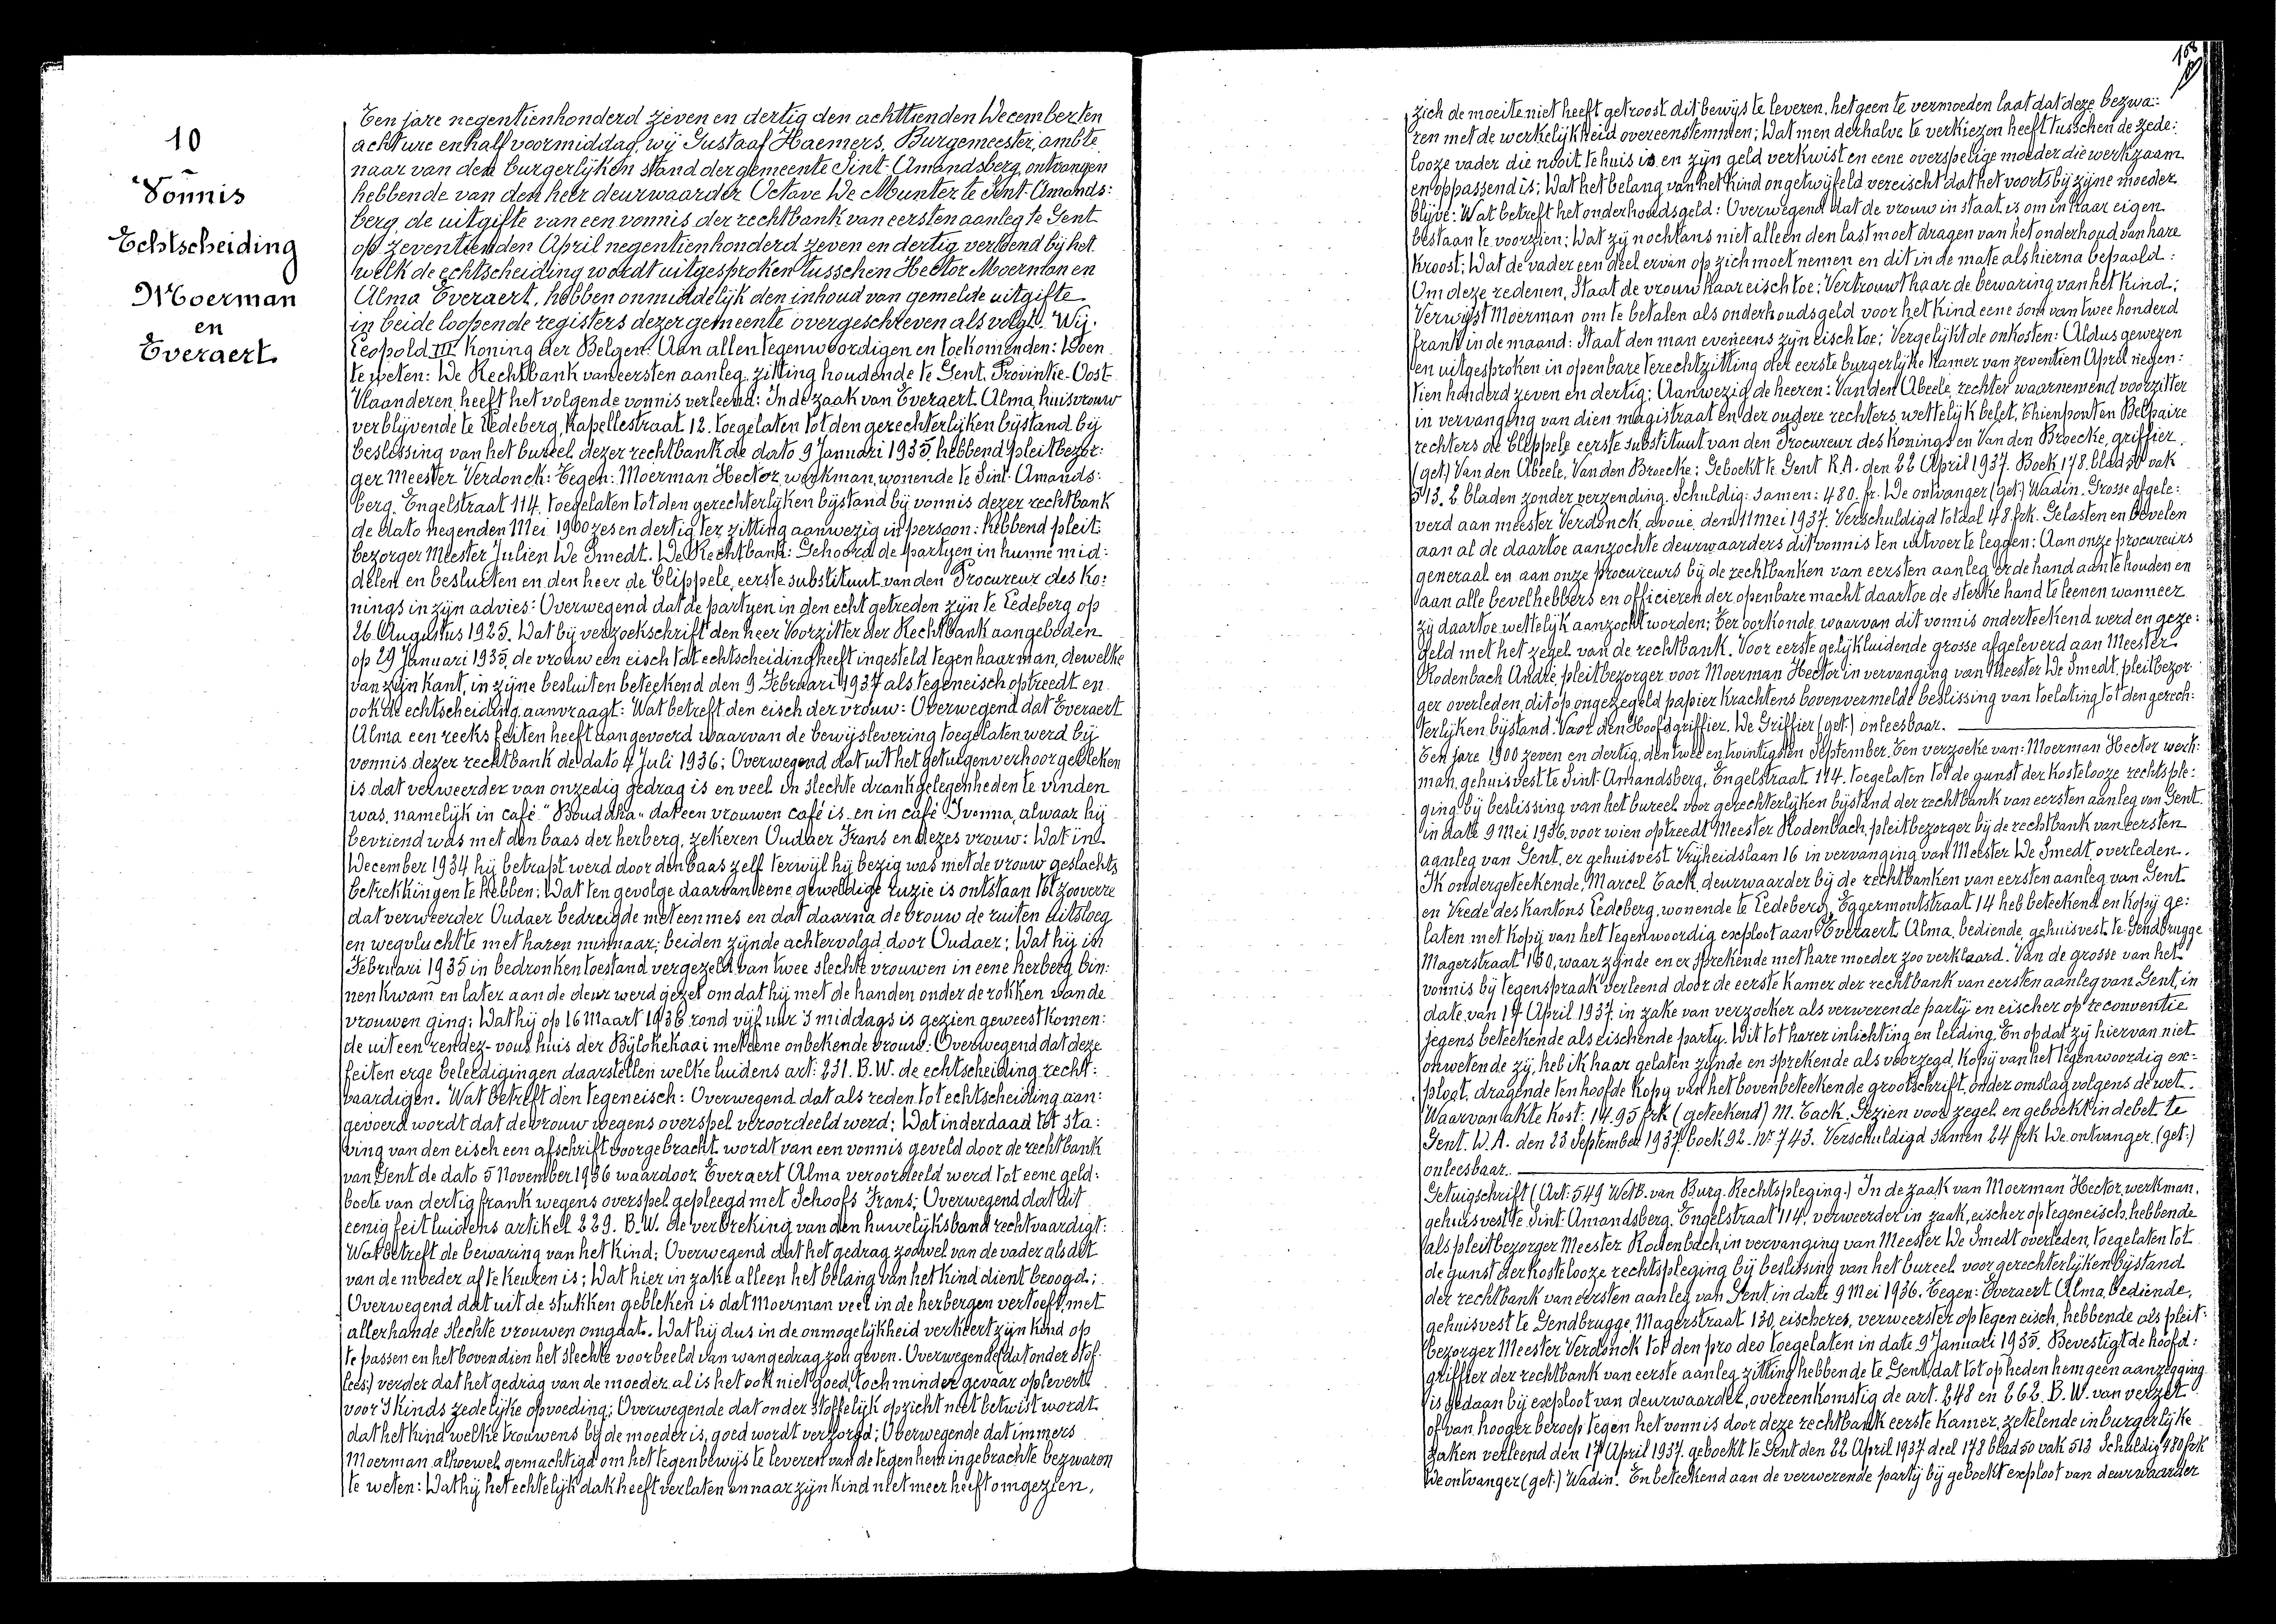 10
Vonnis
Echtscheiding
Moerman
en
Everaert
Ten jare negentienhonderd zeven en dertig den achttienden Decemberten
acht ure en half voormiddag, wij Gustaaf Haemers, Burgemeester, ambte
naar van den burgerlijken stand der gemeente Sint-Amandsberg, ontvangen
hebbende van den heer deurwaarder Octave De Munter te Sint-Amands:
berg, de uitgifte van een vonnis der rechtbank van eersten aanleg te Gent
op zeventienden April negentienhonderd zeven en dertig verleend bij het
welk de echtscheiding wordt uitgesproken tusschen Hector Moerman en
Alma Everaert, hebben onmiddelijk den inhoud van gemelde uitgifte
in beide loopende registers dezer gemeente overgeschreven als volgt. Wij.
Leopold III Koning der Belgen: Aan allen tegenwoordigen en toekomenden: Doen
te weten: De Rechtbank van eersten aanleg, zitting houdende te Gent, Provintie-Oost-
Vlaanderen, heeft het volgende vonnis verleend: In de zaak van Everaert Alma, huisvrouw
verblijvende te Ledeberg, Kapellestraat 12. toegelaten tot den gerechterlijken bijstand bij
beslessing van het bureel dezer rechtbank de dato 9 Januari 1935, hebbend pleitbezor:
ger Meester Verdonck: Tegen: Moerman Hector, werkman, wonende te Sint-Amands:
berg. Engelstraat 114. toegelaten tot den gerechterlijken bijstand bij vonnis dezer rechtbank
de dato negenden Mei 1900 zes en dertig ter zitting aanwezig in persoon: hebbend pleit:
bezorger Meester Julien De Smedt. De Rechtbank: Gehoord de partyen in hunne mid:
delen en besluiten en den heer de Clippele, eerste substituut van den Procureur des Ko:
nings in zijn advies: Overwegend dat de partyen in den echt getreden zijn te Ledeberg op
26 Augustus 1925. Dat bij verzoekschrift den heer Voorzitter der Rechtbank aangeboden
op 29 Januari 1935, de vrouw een eisch tot echtscheiding heeft ingesteld tegen haar man, dewelke
van zijn kant, in zijne besluiten beteekend den 9 Februari 1937 als tegeneisch optreedt en
ook de echtscheiding aanvraagt: Wat betreft den eisch der vrouw: Overwegend dat Everaert
Alma een reeks feiten heeft aangevoerd waarvan de bewijslevering toegelaten werd bij
vonnis dezer rechtbank de dato 4 Juli 1936; Overwegend dat uit het getuigenverhoor gebleken
is dat verweerder van onzedig gedrag is en veel in slechte drankgelegenheden te vinden
was, namelijk in café "Bouddha" dat een vrouwen café is en in café Ivonna, alwaar hij
bevriend was met den baas der herberg, zekeren Oudaer Frans en dezes vrouw: Dat in
December 1934 hij betrapt werd door den baas zelf terwijl hij bezig was met de vrouw geslachts
betrekkingen te hebben: Dat ten gevolge daarvan eene geweldige ruzie is ontstaan tot zooverre
dat verweerder Oudaer bedreigde met een mes en dat daarna de vrouw de ruiten uitsloeg
en wegvluchtte met haren minnaar, beiden zijnde achtervolgd door Oudaer; Dat hij in
Februari 1935 in bedronken toestand vergezeld van twee slechte vrouwen in eene herberg bin:
nen kwam en later aan de deur werd gezet omdat hij met de handen onder de rokken van de
vrouwen ging; Dat hij op 16 Maart 1936 rond vijf uur 's middags is gezien geweest komen:
de uit een rendez-vous huis der Bijlokekaai met eene onbekende vrouw: Overwegend dat deze
feiten erge beleedigingen daarstellen welke luidens art: 231. B.W. de echtscheiding recht:
vaardigen. Wat betreft den tegeneisch: Overwegend dat als reden tot echtscheiding aan:
gevoerd wordt dat de vrouw wegens overspel veroordeeld werd; Dat inderdaad tot sta:
ving van den eisch een afschrift voorgebracht wordt van een vonnis geveld door de rechtbank
van Gent de dato 5 November 1936 waardoor Everaert Alma veroordeeld werd tot eene geld:
boete van dertig frank wegens overspel gepleegd met Schoofs Frans; Overwegend dat dit
eenig feit luidens artikel 229. B.W. de verbreking van den huwelijksband rechtvaardigt:
Wat betreft de bewaring van het kind; Overwegend dat het gedrag zoowel van de vader als dit
van de moeder af te keuren is; Dat hier in zake alleen het belang van het kind dient beoogd;
Overwegend dat uit de stukken gebleken is dat Moerman veel in de herbergen vertoeft, met
allerhande slechte vrouwen omgaat. Dat hij dus in de onmogelijkheid verkeert zijn kind op
te passen en het bovendien het slechte voorbeeld van wangedrag zou geven. Overwegende (dat onder stof
lees) verder dat het gedrag van de moeder al is het ook niet goed, toch minder gevaar oplevert
voor 's kinds zedelijke opvoeding; Overwegende dat onder stoffelijk opzicht niet betwist wordt
dat het kind welke trouwens bij de moeder is, goed wordt verzorgd; Overwegende dat immers
Moerman alhoewel gemachtigd om het tegenbewijs te leveren van de tegen hem ingebrachte bezwaren
te weten: Dat hij het echtelijk dak heeft verlaten en naar zijn kind niet meer heeft omgezien,
168
zich de moeite niet heeft getroost dit bewijs te leveren, hetgeen te vermoeden laat dat deze bezwa:
ren met de werkelijkheid overeenstemmen; Dat men derhalve te verkiezen heeft tusschen de zede:
looze vader die nooit te huis is en zijn geld verkwist en eene overspelige moeder die werkzaam
en oppassend is; Dat het belang van het kind ongetwijfeld vereischt dat het voorts bij zijne moeder
blijve: Wat betreft het onderhoudsgeld: Overwegend dat de vrouw in staat is om in haar eigen
bestaan te voorzien; Dat zij nochtans niet alleen den last moet dragen van het onderhoud van hare
kroost; Dat de vader een deel ervan op zich moet nemen en dit in de mate als hierna bepaald:
Om deze redenen, Staat de vrouw haar eisch toe: Vertrouwt haar de bewaring van het kind;
Verwijst Moerman om te betalen als onderhoudsgeld voor het kind eene som van twee honderd
frank in de maand: Staat den man eveneens zijn eisch toe; Vergelijkt de onkosten: Aldus gewezen
en uitgesproken in openbare terechtzitting der eerste burgerlijke kamer van zeventien April negen:
tien honderd zeven en dertig: Aanwezig de heeren: Van den Abeele, rechter waarnemend voorzitter
in vervanging van dien magistraat en der oudere rechters, wettelijk belet, Thienpont en Belpaire
rechters de Clippele eerste substituut van den Procureur des Konings en Van den Broecke, griffier.
(get) Van den Abeele. Van den Broecke; Geboekt te Gent R.A. den 22 April 1937. Boek 178. blad 50 vak
513. 2 bladen zonder verzending. Schuldig: samen: 480. fr. De ontvanger (get) Wadin. Grosse afgele:
verd aan meester Verdonck, avoué, den 11 Mei 1937. Verschuldigd totaal 48 frk. Gelasten en bevelen
aan al de daartoe aanzochte deurwaarders dit vonnis ten uitvoer te leggen: Aan onze procureurs
generaal en aan onze procureurs bij de rechtbanken van eersten aanleg er de hand aan te houden en
aan alle bevelhebbers en officieren der openbare macht daartoe de sterke hand te leenen wanneer
zij daartoe wettelijk aanzocht worden; Ter oorkonde waarvan dit vonnis onderteekend werd en geze:
geld met het zegel van de rechtbank. Voor eerste gelijkluidende grosse afgeleverd aan Meester
Rodenbach André, pleitbezorger voor Moerman Hector in vervanging van Meester De Smedt, pleitbezor
ger overleden, dit op ongezegeld papier krachtens bovenvermelde beslissing van toelating tot den gerech:
terlijken bijstand. Voor den Hoofdgriffier. De Griffier (get) onleesbaar.
Ten jare 1900 zeven en dertig, den twee en twintigsten September. Ten verzoeke van: Moerman Hector werk:
man, gehuisvest te Sint-Amandsberg, Engelstraat 114. toegelaten tot de gunst der kostelooze rechtsple:
ging bij beslissing van het bureel voor gerechterlijken bijstand der rechtbank van eersten aanleg van Gent.
in date 9 Mei 1936, voor wien optreedt Meester Rodenbach, pleitbezorger bij de rechtbank van eersten
aanleg van Gent, er gehuisvest Vrijheidslaan 16 in vervanging van Meester De Smedt, overleden.
Ik ondergeteekende, Marcel Tack, deurwaarder bij de rechtbanken van eersten aanleg van Gent
en Vrede des kantons Ledeberg, wonende te Ledeberg, Eggermontstraat 14 heb beteekend en kopij ge:
laten met kopij van het tegenwoordig exploot aan Everaert Alma, bediende, gehuisvest te Gendbrugge
Magerstraat 130, waar zijnde en er sprekende met hare moeder zoo verklaard. Van de grosse van het
vonnis bij tegenspraak verleend door de eerste Kamer der rechtbank van eersten aanleg van Gent, in
date van 17 April 1937. in zake van verzoeker als verwerende partij en eischer op reconventie
jegens beteekende als eischende party. Dit tot harer inlichting en leiding. En opdat zij hiervan niet
onwetende zij, heb ik haar gelaten zijnde en sprekende als voorzegd, kopij van het tegenwoordig ex=
ploot, dragende ten hoofde kopij van het bovenbeteekende grootschrift, onder omslag volgens de wet.
Waarvan akte kost: 14.95 frk (geteekend) M. Tack. Gezien voor zegel en geboekt in debet te
Gent. W.A. den 23 September 1937. boek 92. nr 743. Verschuldigd samen 24 frk De ontvanger. (get:)
onleesbaar.
Getuigschrift (Art: 549 Wetb. van Burg. Rechtspleging.) In de zaak van Moerman Hector, werkman,
gehuisvest te Sint-Amandsberg. Engelstraat 114, verweerder in zaak, eischer op tegeneisch, hebbende
als pleitbezorger Meester Rodenbach, in vervanging van Meester De Smedt overleden, toegelaten tot
de gunst der kostelooze rechtspleging bij beslissing van het bureel voor gerechterlijken bijstand
der rechtbank van eersten aanleg van Gent in date 9 Mei 1936. Tegen: Everaert Alma, bediende,
gehuisvest te Gendbrugge, Magerstraat 130, eischeres, verweerster op tegen eisch, hebbende als pleit:
bezorger Meester Verdonck tot den pro deo toegelaten in date 9 Januari 1935. Bevestigt de hoofd:
griffier der rechtbank van eerste aanleg zitting hebbende te Gent, dat tot op heden hem geen aanzegging
is gedaan bij exploot van deurwaarder, overeenkomstig de art. 248 en 262. B.W. van verzet
of van hooger beroep tegen het vonnis door deze rechtbank eerste Kamer, zetelende in burgerlijke
zaken verleend den 17 April 1937. geboekt te Gent den 22 April 1937 deel 178 blad 50 vak 513 Schuldig 480 frk
De ontvanger (get:) Wadin. En beteekend aan de verwerende partij bij geboekt exploot van deurwaarder